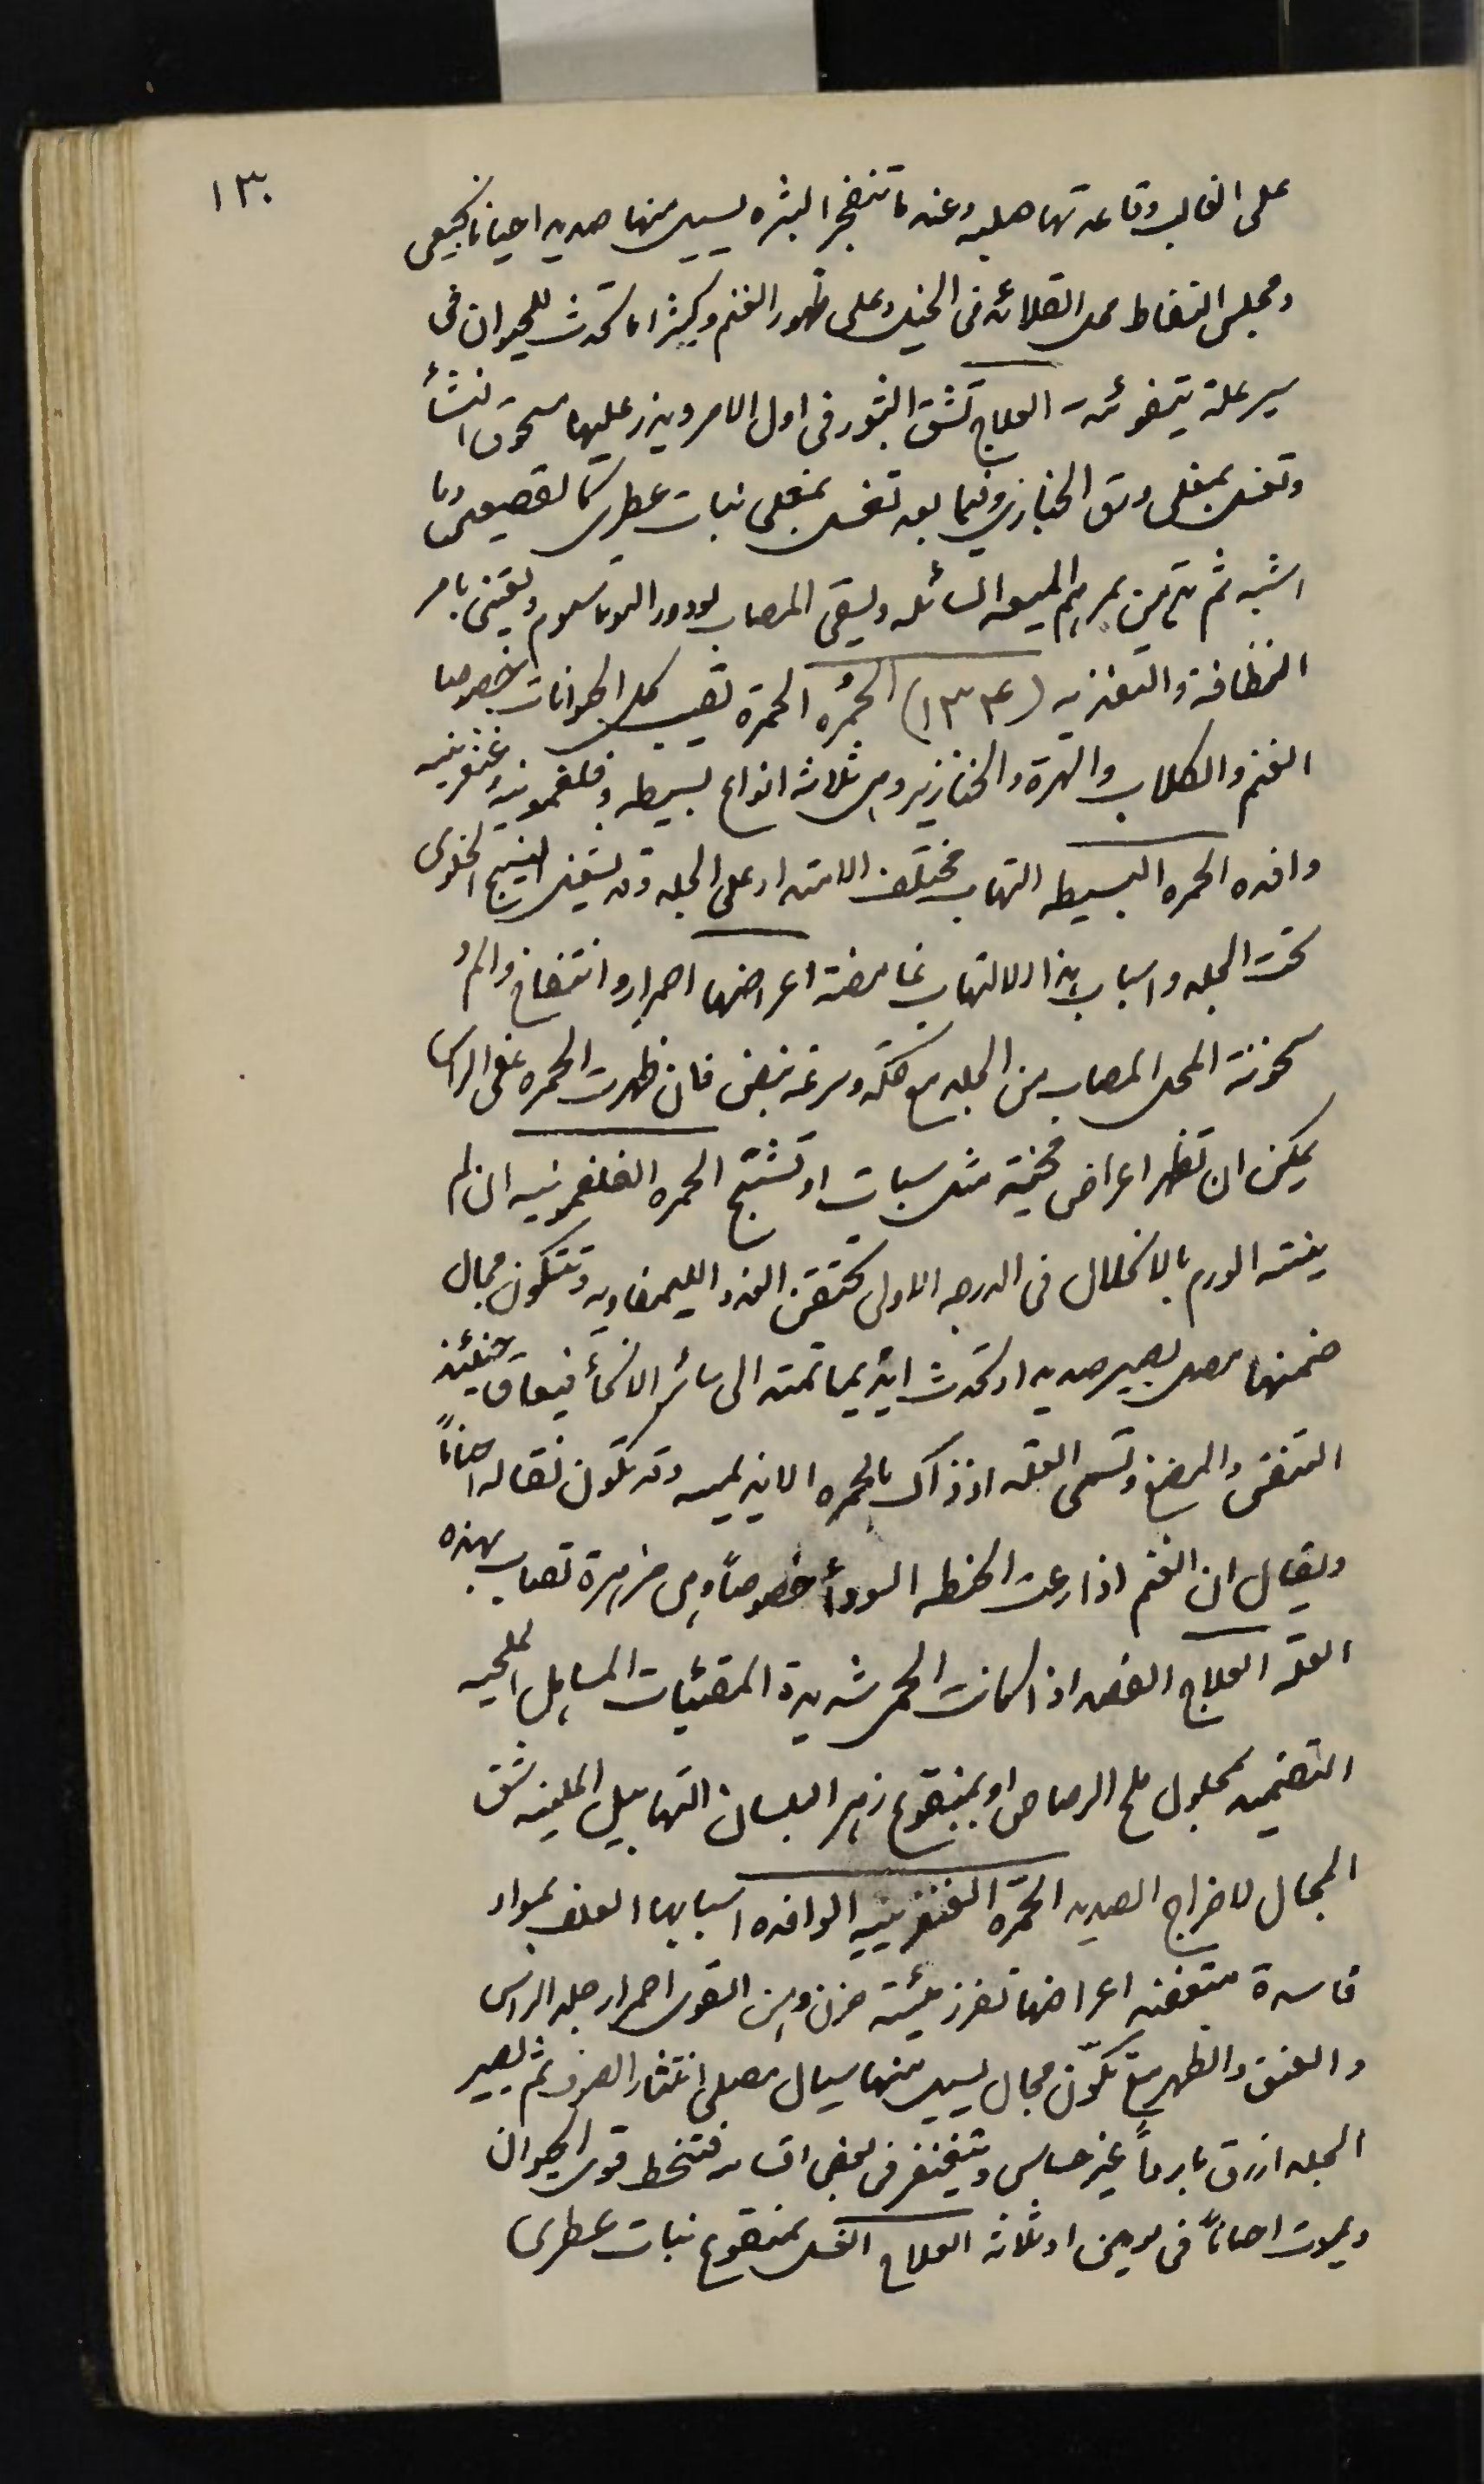 ١٣٠
على الغالب وقاعدتها صلبه وعند ما تنفجر البثره يسيل منها صديد احيانا كيعى
ومجلس النفاط محل القلادئه فى الخيل وعلى ظهور الغنم وكثيرا ما تحدث للحيوان فى
سير علة تيفوئيه العلاج تشق البثور فى اول الامر ويذر عليها مسحوق النشأ
وتغسل بمغلى ورق الخبازى وفيما بعد تغسل بمغلى نبات عطرى كالقصيعى وما
اشبه ثم تدهن بمرهم الميعه السائله ويسقى المصاب بودور البوتاسيوم ويعتنى بامر
النظافة والتغذيه (١٣٤) الحُمْره الحمرة تصيب كل الحيوانات خصوصا
الغنم والكلاب والهرة والخنازير وهى ثلاثة انواع بسيطه وفلغمونيه وغنغرينيه
وافده الحمره البسيطه التهاب مختلف الامتداد على الجلد وقد يشغل النسيج الخلوى
تحت الجلد واسباب هذا الالتهاب غامضة اعراضها احمرار وانتفاخ والم و
سخونة المحل المصاب من الجلد مع حكه وسرعة نبض فان ظهرت الحمره على الراس
يمكن ان تظهر اعراض مخيّة مثل سبات او تشنّج الحمره الفلغمونيه ان لم
ينته الورم بالانحلال فى الدرجه الاولى تحتقن الغدد الليمفاويه وتتكون مجال
ضمنها مصل يصير صديد او تحدث ايذيما تمتد الى سائر الانحأ فيعاق حينئذ
التنفس والمضغ وتسمى العله اذ ذاك بالحمره الايذيميه وقد تكون نقاله احيانًا
ويقال ان الغنم اذا رعت الحنطه السودأ خصوصاً وهى مزهرة تصاب بهذه
العلة العلاج الفصد اذا كانت الحمى شديدة المقيئات المساهل الملحيه
التضميد بمحلول ملح الرصاص او بمنقوع زهر البلسان التهابيل الملينه شق
المجال لاخراج الصديد الحمّره الغنغرينيه الوافده اسبابها العلف بمواد
فاسدة متعفنه اعراضها تفرز هيئة حزن وهن القوى احمرار جلد الراس
والعنق والظهر مع تكوّن مجال يسيل منها سيال مصلى انتثار الصوف ثم يصير
الجلد ازرق باردًا غير حساس ويتغنغر فى بعض اقسامه فتنحط قوى الحيوان
ويموت احيانًا فى يومين او ثلاثه العلاج الغسل بمنقوع نبات عطرى